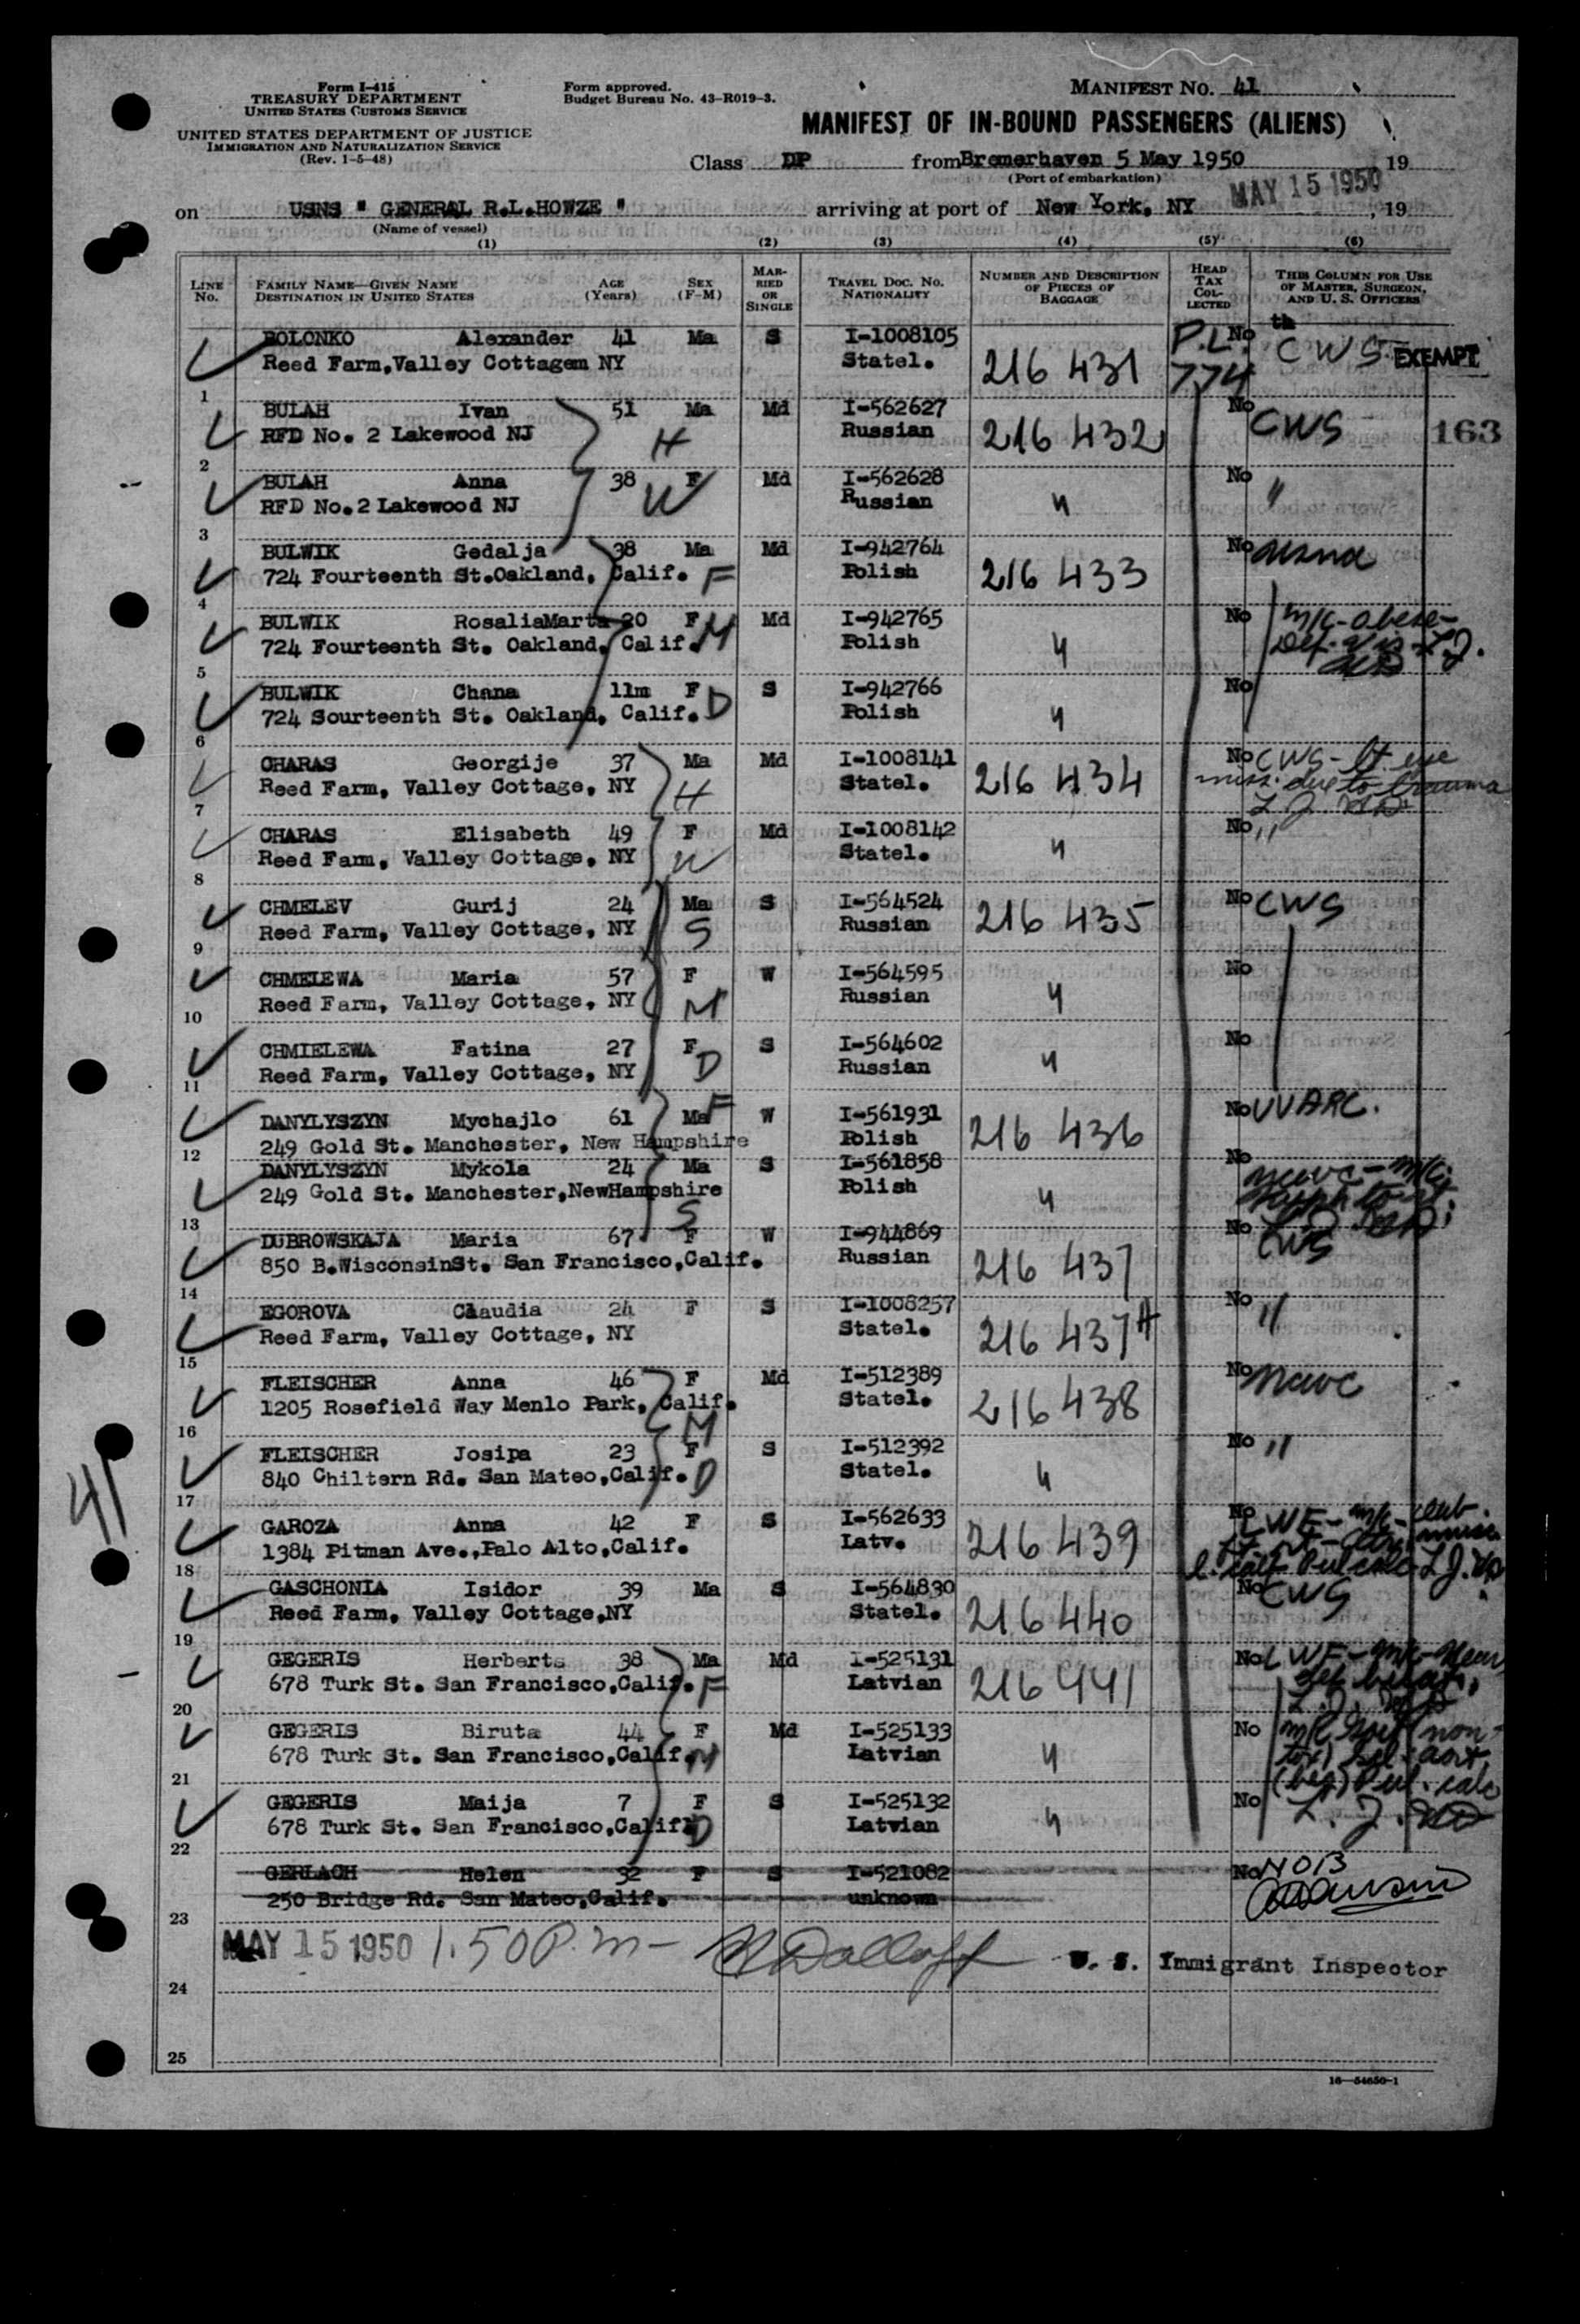 Form I-415
TREASURY DEPARTMENT
UNITED STATES CUSTOMS SERVICE
UNITED STATES DEPARTMENT OF JUSTICE
IMMIGRATION AND NATURALIZATION SERVICE
(Rev. 1-5-48)
Form approved.
Budget Bureau No. 43-R019-3.
MANIFEST NO. 41
MANIFEST OF IN-BOUND PASSENGERS (ALIENS)
Class DP from Bremerhaven 5 May 1950, 19
(Port of embarkation)
MAY 15 1950
on USNS " GENERAL R.L.HOWZE " arriving at port of New York, NY, 19
(Name of vessel)
(1) (2) (3) (4) (5) (6)
LINE No. FAMILY NAME—GIVEN NAME DESTINATION IN UNITED STATES AGE (Years) SEX (F-M) MARRIED OR SINGLE TRAVEL DOC. NO. NATIONALITY NUMBER AND DESCRIPTION OF PIECES OF BAGGAGE HEAD TAX COLLECTED THIS COLUMN FOR USE OF MASTER, SURGEON, AND U. S. OFFICERS
BOLONKO Alexander 41 Ma S I-1008105 P.L. No th CWS EXEMPT
Reed Farm,Valley Cottagem NY Statel. 216 431 774
1
BULAH Ivan 51 Ma Md I-562627 No CWS 163
RFD No. 2 Lakewood NJ H Russian 216 432
2
BULAH Anna 38 F Md I-562628 No "
RFD No.2 Lakewood NJ W Russian "
3
BULWIK Gedalja 38 Ma Md I-942764 No usna
724 Fourteenth St.Oakland, Calif. F Polish 216 433
4
BULWIK RosaliaMarta 20 F Md I-942765 No m/c-obese-
724 Fourteenth St. Oakland, Calif. M Polish " Def. Vis L.J.
5
BULWIK Chana 11m F S I-942766 No
724 Sourteenth St. Oakland, Calif. D Polish "
6
CHARAS Georgije 37 Ma Md I-1008141 No CWS - lt. eye
Reed Farm, Valley Cottage, NY H Statel. 216 434 miss. due to trauma
7
CHARAS Elisabeth 49 F Md I-1008142 No "
Reed Farm, Valley Cottage, NY W Statel. "
8
CHMELEV Gurij 24 Ma S I-564524 No CWS
Reed Farm, Valley Cottage, NY S Russian 216 435
9
CHMELEWA Maria 57 F W I-564595 No
Reed Farm, Valley Cottage, NY M Russian "
10
CHMIELEWA Fatina 27 F S I-564602 No
Reed Farm, Valley Cottage, NY D Russian "
11
DANYLYSZYN Mychajlo 61 Ma F W I-561931 No UUARC.
249 Gold St. Manchester, New Hampshire Polish 216 436
12
DANYLYSZYN Mykola 24 Ma S I-561858 No
249 Gold St. Manchester,NewHampshire S Polish "
13
DUBROWSKAJA Maria 67 F W I-944869 No CWS
850 B.WisconsinSt. San Francisco,Calif. Russian 216 437
14
EGOROVA Claudia 24 F S I-1008257 No "
Reed Farm, Valley Cottage, NY Statel. 216 437A
15
FLEISCHER Anna 46 F Md I-512389 No ncwc
1205 Rosefield Way Menlo Park, Calif. M Statel. 216 438
16
FLEISCHER Josipa 23 F S I-512392 No "
840 Chiltern Rd. San Mateo,Calif. D Statel. "
17
41
GAROZA Anna 42 F S I-562633 No LWF - m/c -
1384 Pitman Ave.,Palo Alto,Calif. Latv. 216 439
18
GASCHONIA Isidor 39 Ma S I-564830 No CWS
Reed Farm, Valley Cottage,NY Statel. 216 440
19
GEGERIS Herberts 38 Ma Md I-525131 No LWF - m/c -
678 Turk St. San Francisco,Calif. F Latvian 216 441
20
GEGERIS Biruta 44 F Md I-525133 No
678 Turk St. San Francisco,Calif. M Latvian "
21
GEGERIS Maija 7 F S I-525132 No
678 Turk St. San Francisco,Calif. D Latvian "
22
GERLACH Helen 32 F S I-521082 No NOB
250 Bridge Rd. San Mateo,Calif. unknown
23
MAY 15 1950 1.50 P.m- U. S. Immigrant Inspector
24
25
16—54650-1